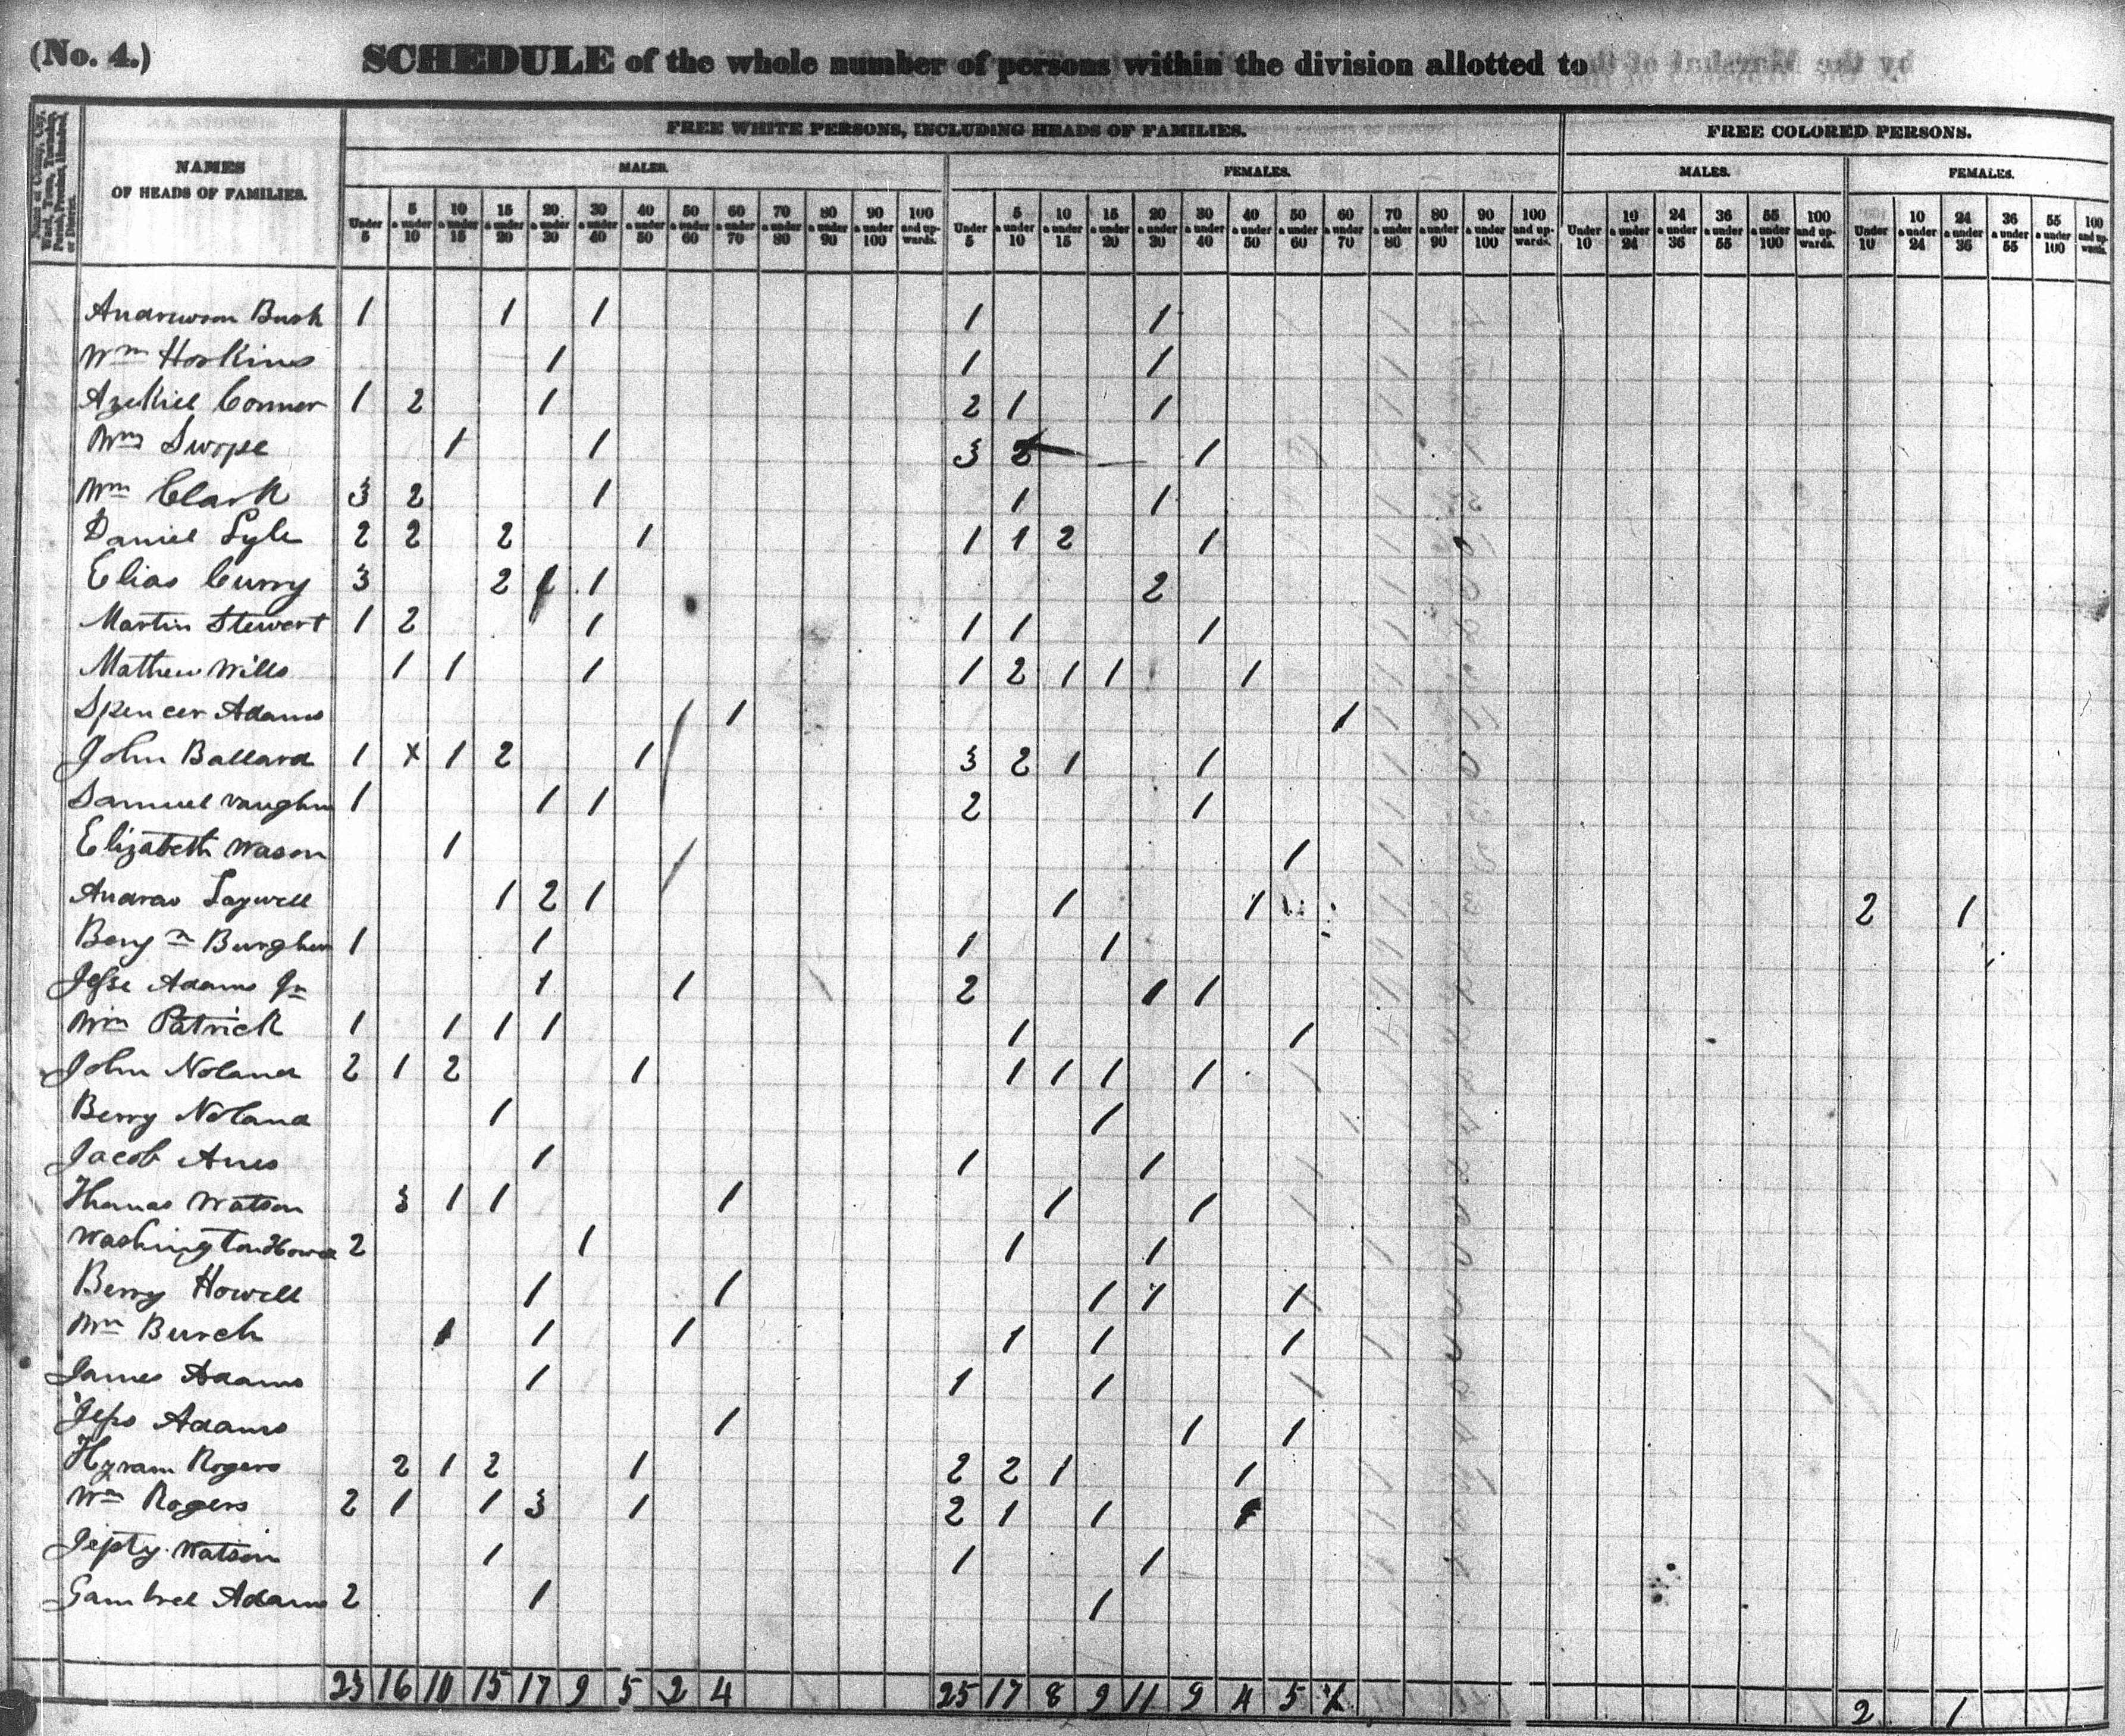 (No. 4.) SCHEDULE of the whole number of persons within the division allotted to
FREE WHITE PERSONS, INCLUDING HEADS OF FAMILIES. FREE COLORED PERSONS.
NAMES OF HEADS OF FAMILIES.
MALES. FEMALES. MALES. FEMALES.
Under 5 5 a under 10 10 a under 15 15 a under 20 20 a under 30 30 a under 40 40 a under 50 50 a under 60 60 a under 70 70 a under 80 80 a under 90 90 a under 100 100 and upwards. Under 5 5 a under 10 10 a under 15 15 a under 20 20 a under 30 30 a under 40 40 a under 50 50 a under 60 60 a under 70 70 a under 80 80 a under 90 90 a under 100 100 and upwards. Under 10 10 a under 24 24 a under 36 36 a under 55 55 a under 100 100 and upwards. Under 10 10 a under 24 24 a under 36 36 a under 55 55 a under 100 100 and upwards.
Bush 1 1 1 1 1
Wm Hoskins 1 1 1
Azekiel Conner 1 2 1 2 1 1
Wm Swope 1 1 3 1
Wm Clark 3 2 1 1 1
Daniel Lyle 2 2 2 1 1 1 2 1
Elias Curry 3 2 1 2
Martin Stewert 1 2 1 1 1 1
Mathew Wills 1 1 1 1 2 1 1 1
Spencer Adams 1 1
John Ballard 1 x 1 2 1 3 2 1 1
Samuel Vaughn 1 1 1 2 1
Elizabeth Wason 1 1
1 2 1 1 1 2 1
1 1 1 1
Jesse Adams Jn 1 1 2 1 1
Wm Patrick 1 1 1 1 1 1
John Noland 2 1 2 1 1 1 1 1
Berry Noland 1 1
Jacob Ames 1 1 1
Thomas Watson 3 1 1 1 1 1
Washington 2 1 1 1
Berry Howell 1 1 1 1 1
Wm Burch 1 1 1 1 1 1
James Adams 1 1 1
Adams 1 1 1
Hyram Rogers 2 1 2 1 2 2 1 1
Wm Rogers 2 1 1 3 1 2 1 1 1
Jepty Watson 1 1 1
Gambrel Adams 2 1 1
23 16 10 15 17 9 5 2 4 25 17 8 9 11 9 4 5 2 1